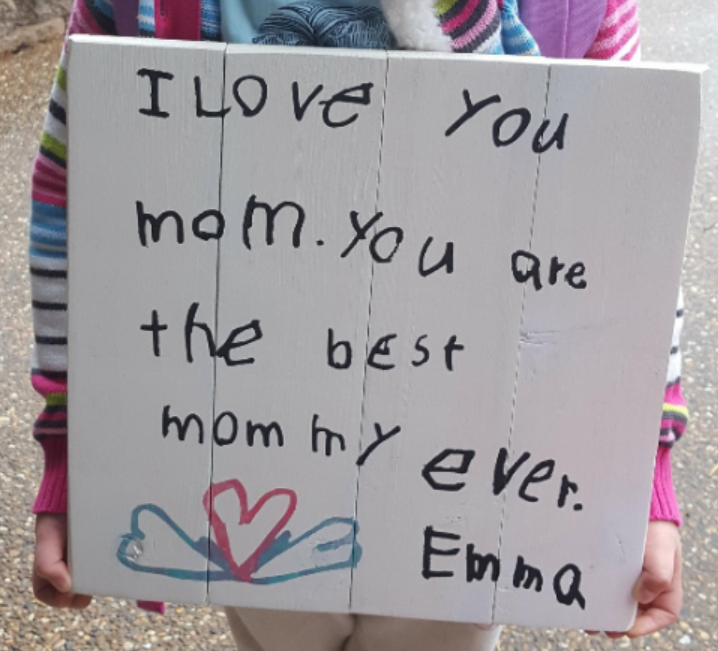 I LOVe You
mom. You are
the best
mommy ever.
Emma